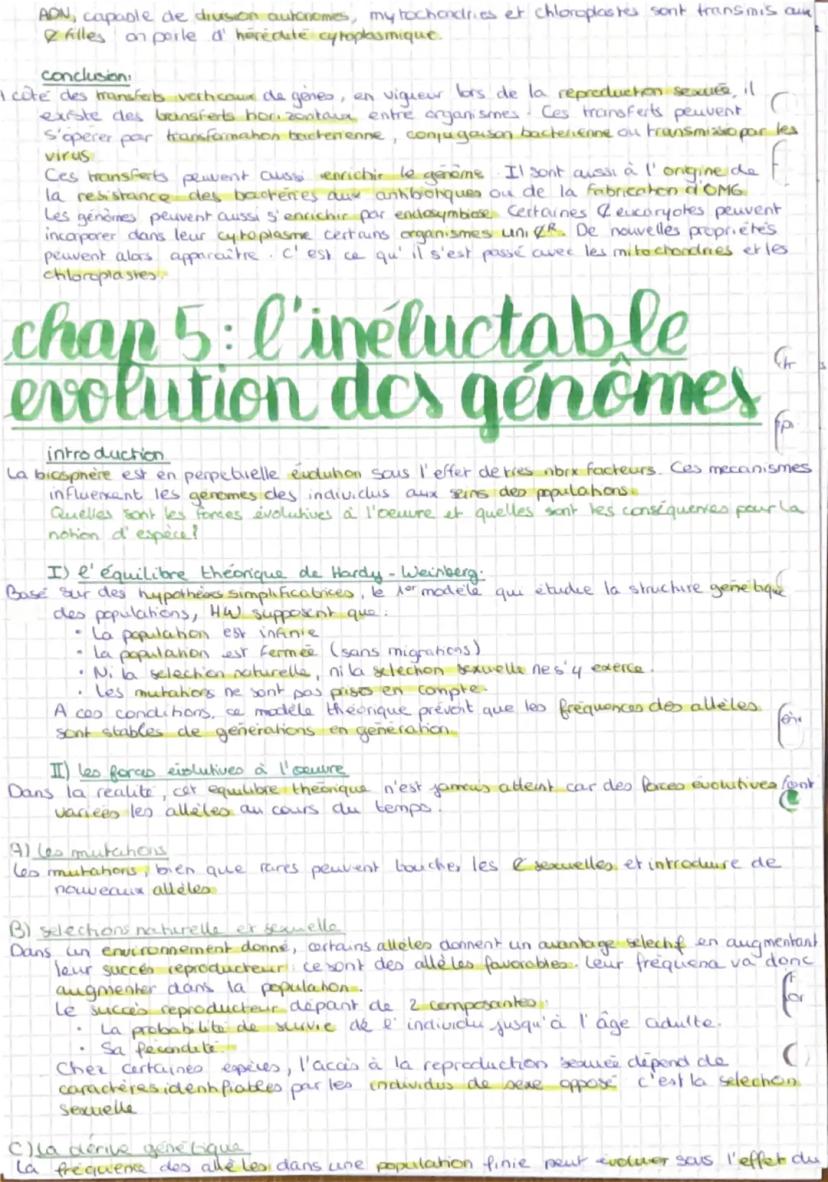 ADN, capable de division autonomes, mytochondries et chloroplastes sont transmis aux
¢ filles on parle d'hérédité cytoplasmique.
conclusion:
A côté des transferts verticaux de gènes, en vigueur lors de la reproduction sexuée, il
existe des transferts horizontaux entre organismes. Ces transferts peuvent
s'opérer par transformation bactérienne, conjugaison bactérienne ou transmission par les
virus.
Ces transferts peuvent aussi enrichir le génome. Il sont aussi à l'origine de
la resistance des bactéries aux antibiotiques ou de la fabrication d'OMG.
Les génomes peuvent aussi s'enrichir par endosymbiose. Certaines ¢ eucaryotes peuvent
incoporer dans leur cytoplasme certains organismes uni¢R. De nouvelles propriétés
peuvent alors apparaître. C'est ce qu'il s'est passé avec les mitochondries et les
chloroplastes.
chap 5: l'inéluctable
evolution des génômes
introduction
La biosphère est en perpetuelle évolution sous l'effet de très nbrx facteurs. Ces mecanismes
influencant les génomes des individus aux seins des populations.
Quelles sont les forces évolutives à l'oeuvre et quelles sont les conséquences pour la
notion d'espèce?
I) l'équilibre théorique de Hardy-Weinberg.
Basé sur des hypothèses simplificatrices, le 1er modèle qui étudie la structure génétique
des populations, HW supposent que:
• La population est infinie
• la population est fermée (sans migrations)
• Ni la selection naturelle, ni la selection sexuelle ne s'y exerce.
• Les mutations ne sont pas prises en compte.
A ces conditions, ce modèle théorique prévoit que les fréquences des allèles
sont stables de générations en génération.
II) les forces évolutives à l'oeuvre
Dans la réalité, cet equilibre théorique n'est jamais atteint car des forces évolutives font
variées les allèles au cours du temps.
A) Les mutations
Les mutations, bien que rares peuvent toucher les ¢ sexuelles et introduire de
nouveaux allèles
B) selections naturelle et sexuelle
Dans un environnement donné, certains allèles donnent un avantage selectif en augmentant
leur succès reproducteur: ce sont des allèles favorables. Leur fréquence va donc
augmenter dans la population.
Le succès reproducteur dépant de 2 composantes:
• La probabilité de survie de l'individu jusqu'à l'âge adulte.
• Sa fécondité.
Chez certaines espèces, l'accès à la reproduction sexuée dépend de
caractères identifiables par les individus de sexe opposé c'est la selection
sexuelle
C) La dérive génétique
La fréquence des allèles dans une population finie peut évoluer sous l'effet du